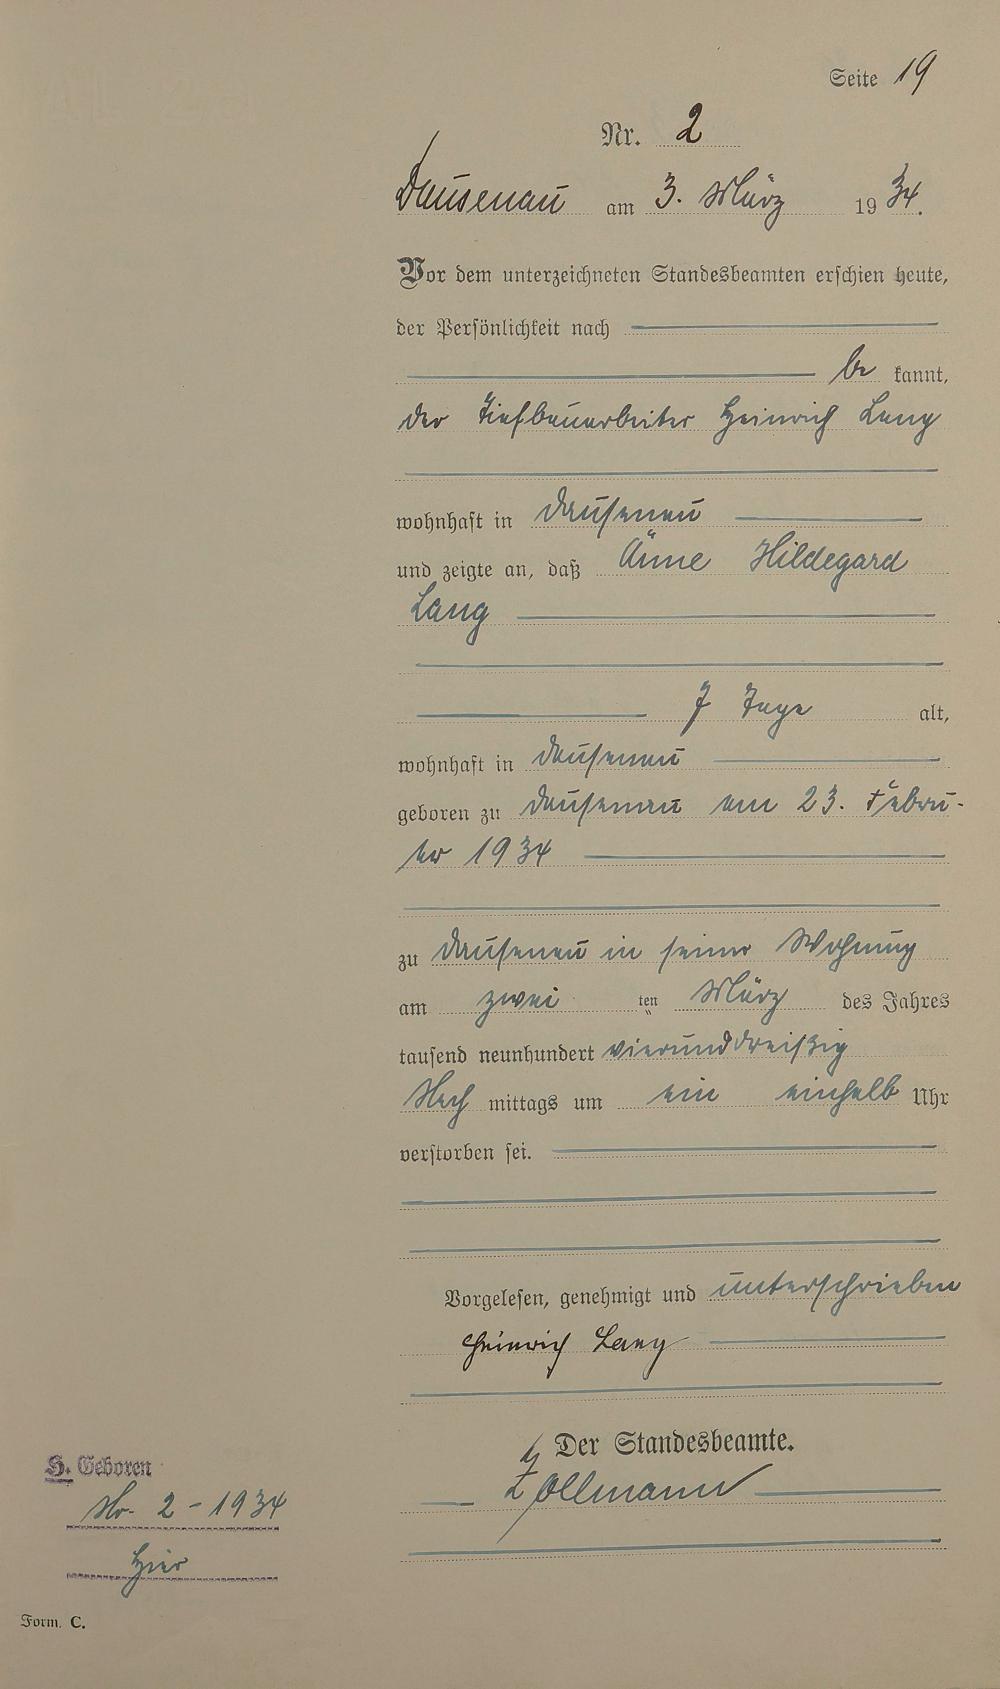 Seite 19
Nr. 2
Dausenau am 3. März 1934.
Vor dem unterzeichneten Standesbeamten erschien heute,
der Persönlichkeit nach
be kannt,
der Tiefbauarbeiter Heinrich Lang
wohnhaft in Dausenau
und zeigte an, daß Änne Hildegard
Lang
7 Tage alt,
wohnhaft in Dausenau
geboren zu Dausenau am 23. Febru-
ar 1934
zu Dausenau in seiner Wohnung
am zwei ten März des Jahres
tausend neunhundert vierunddreißig
Nach mittags um ein einhalb Uhr
verstorben sei.
Vorgelesen, genehmigt und unterschrieben
Heinrich Lang
Der Standesbeamte.
Zollmann
H. Geboren
Nr. 2 - 1934
hier
Form. C.